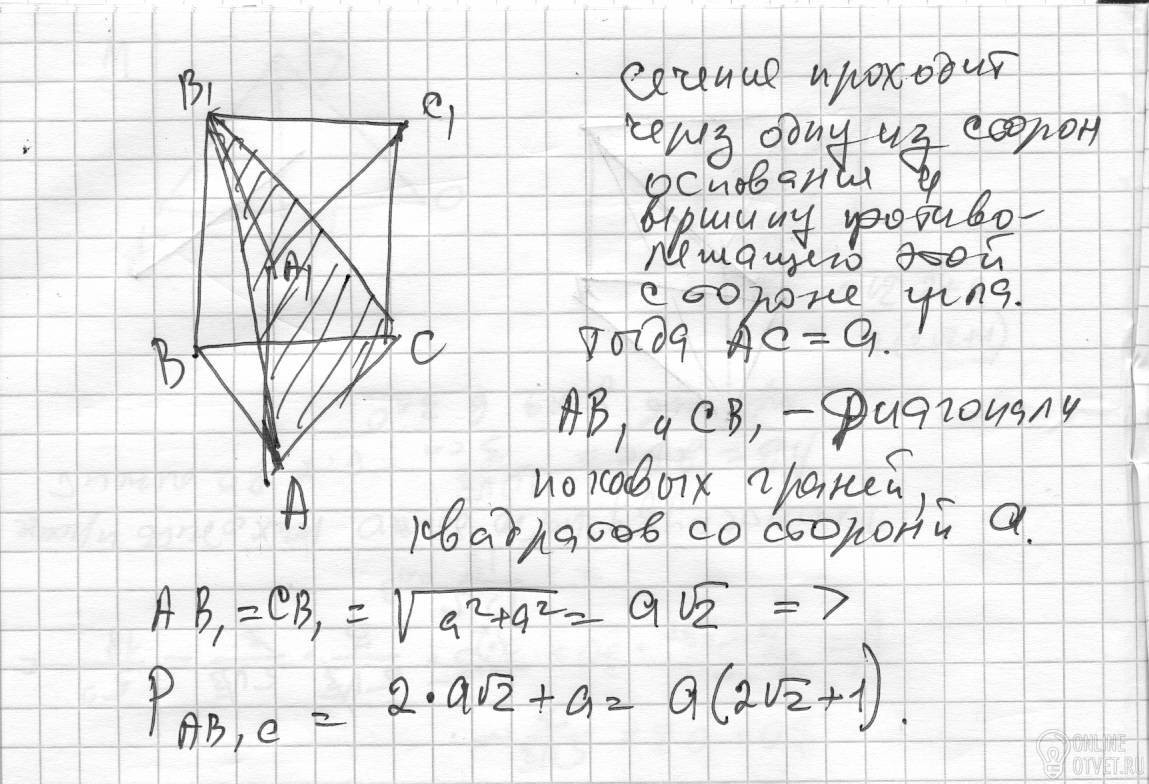 B₁
C₁
A₁
B
C
A
Сечение проходит
через одну из сторон
основания и
вершину противо-
лежащего этой
стороне угла.
Тогда AC = a.
AB₁ и CB₁ – Диагонали
боковых граней,
квадратов со стороной a.
AB₁ = CB₁ = √(a²+a²) = a√2 =>
P_AB₁C = 2·a√2 + a = a(2√2+1).
ONLINE
OTVET.RU